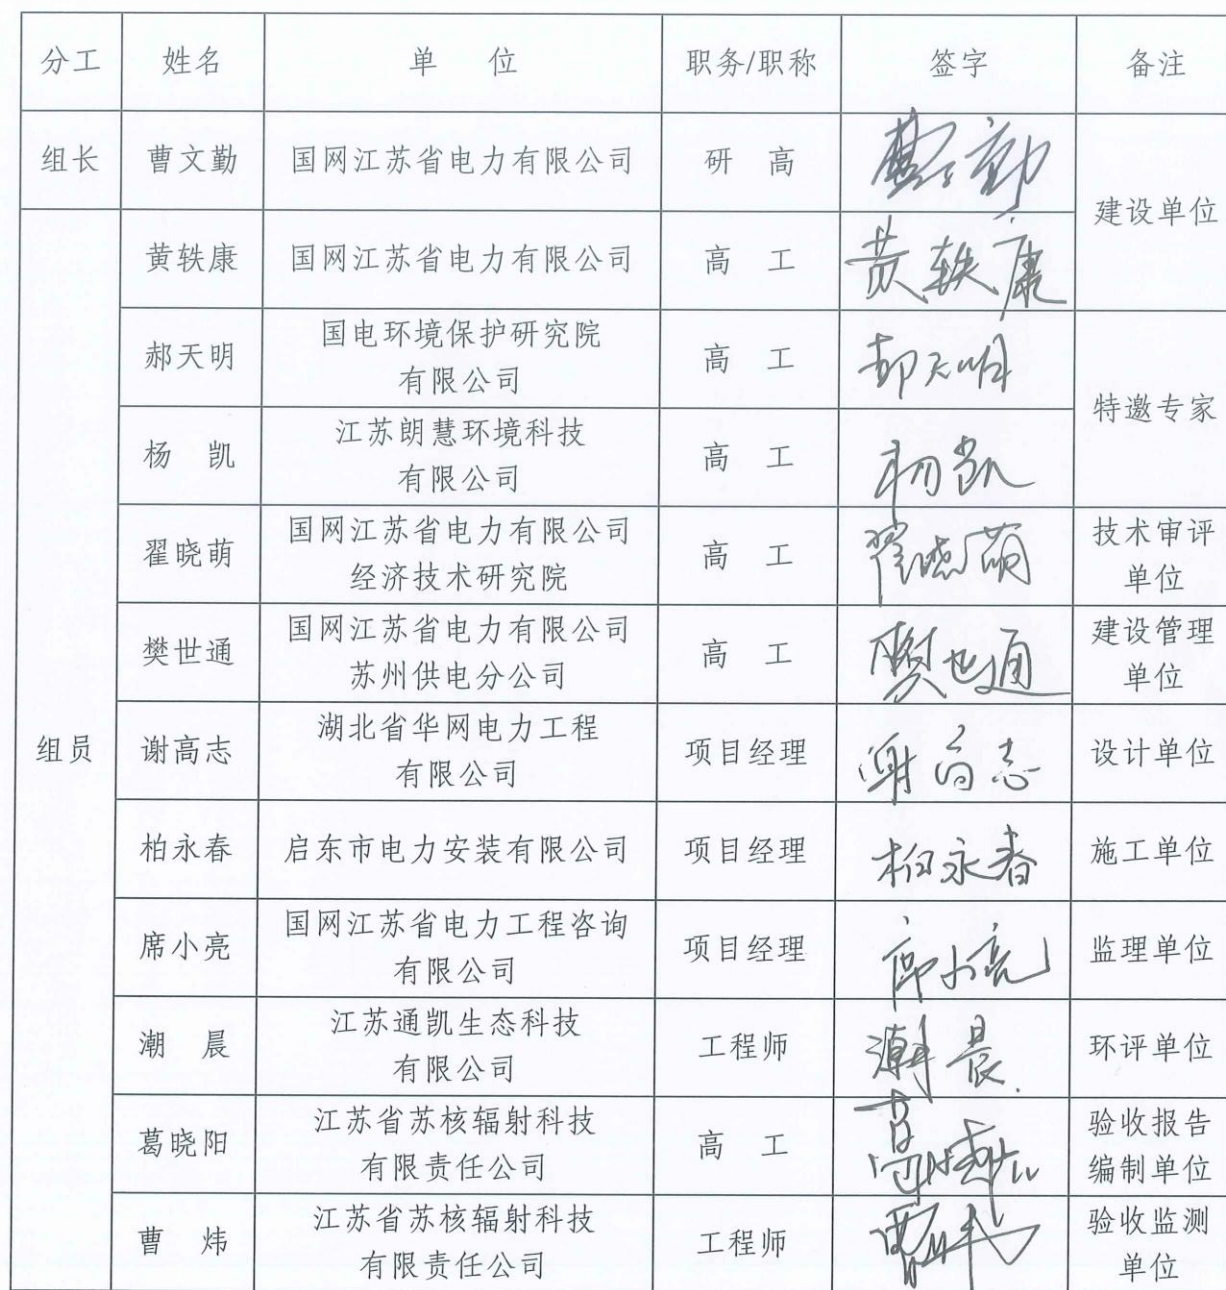 分工 姓名 单 位 职务/职称 签字 备注
组长 曹文勤 国网江苏省电力有限公司 研 高 曹文勤
建设单位
黄轶康 国网江苏省电力有限公司 高 工 黄轶康
郝天明 国电环境保护研究院
有限公司 高 工 郝天明
特邀专家
杨 凯 江苏朗慧环境科技
有限公司 高 工 杨凯
翟晓萌 国网江苏省电力有限公司
经济技术研究院 高 工 翟晓萌 技术审评
单位
樊世通 国网江苏省电力有限公司
苏州供电分公司 高 工 樊世通 建设管理
单位
组员 谢高志 湖北省华网电力工程
有限公司 项目经理 谢高志 设计单位
柏永春 启东市电力安装有限公司 项目经理 柏永春 施工单位
席小亮 国网江苏省电力工程咨询
有限公司 项目经理 席小亮 监理单位
潮 晨 江苏通凯生态科技
有限公司 工程师 潮晨 环评单位
葛晓阳 江苏省苏核辐射科技
有限责任公司 高 工 葛晓阳 验收报告
编制单位
曹 炜 江苏省苏核辐射科技
有限责任公司 工程师 曹炜 验收监测
单位